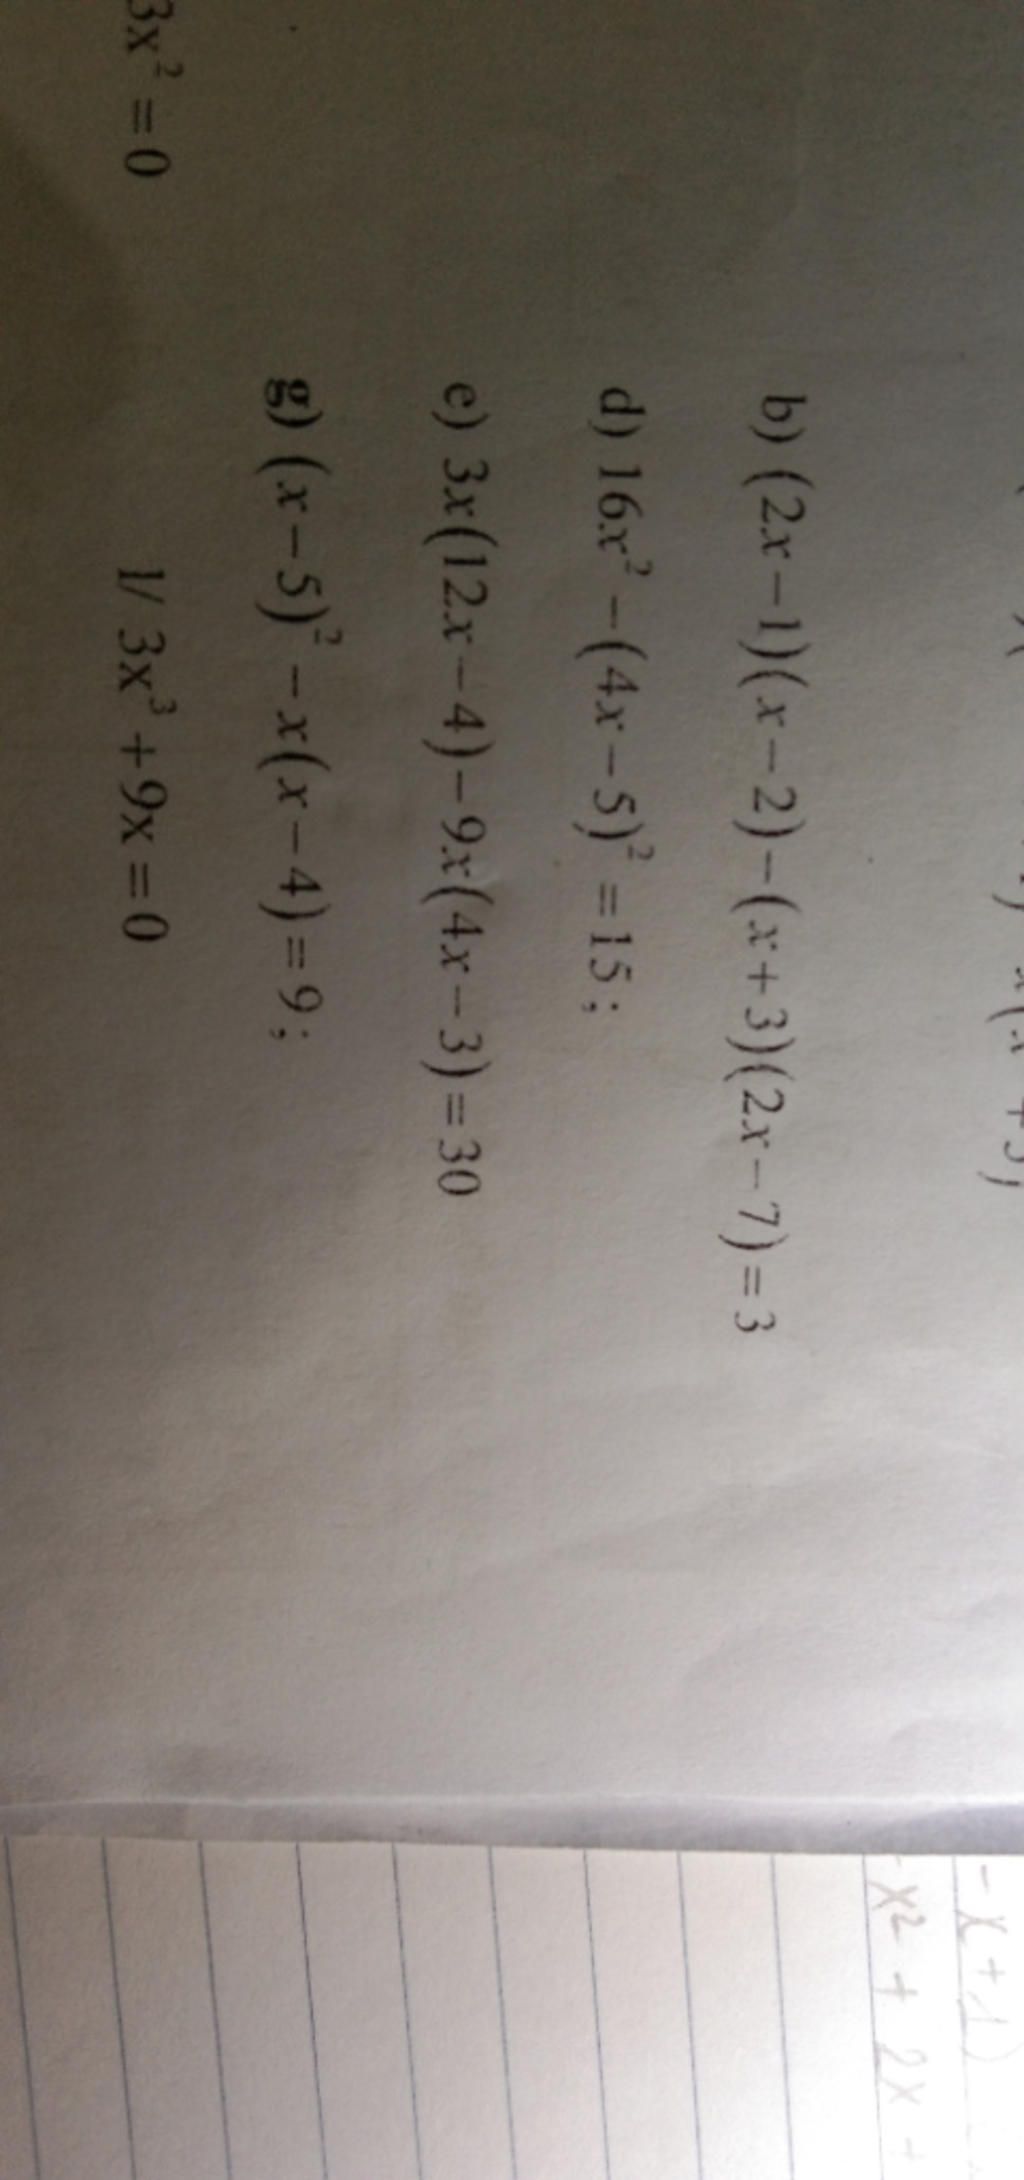 b) (2x-1)(x-2)-(x+3)(2x-7)=3
d) 16x²-(4x-5)²=15;
e) 3x(12x-4)-9x(4x-3)=30
g) (x-5)²-x(x-4)=9;
3x²=0
l/ 3x³+9x=0
-x+1)
-x²+2x+